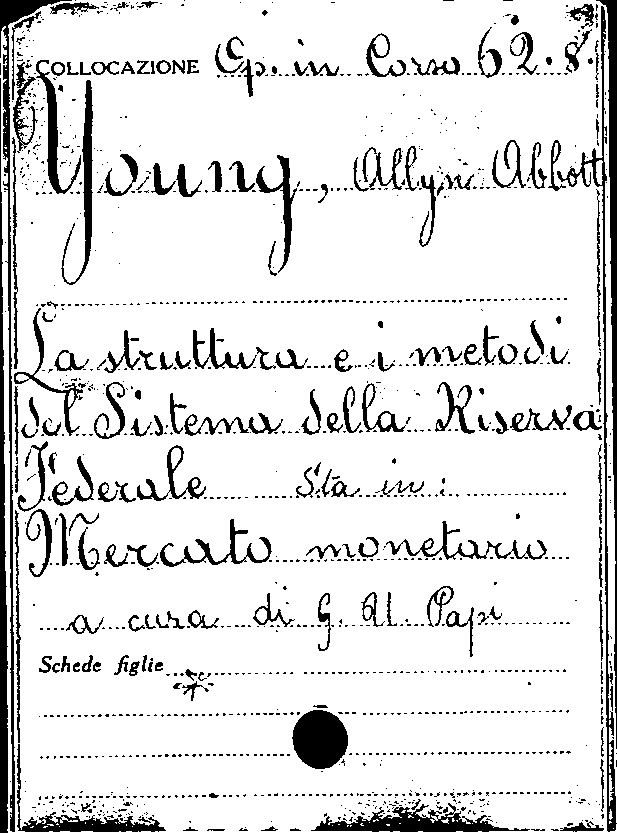 COLLOCAZIONE Op. in Corso 62.8.
Young, Allyn Abbott
La struttura e i metodi
del Sistema della Riserva
Federale Sta in:
Mercato monetario
a cura di G. U. Papi
Schede figlie